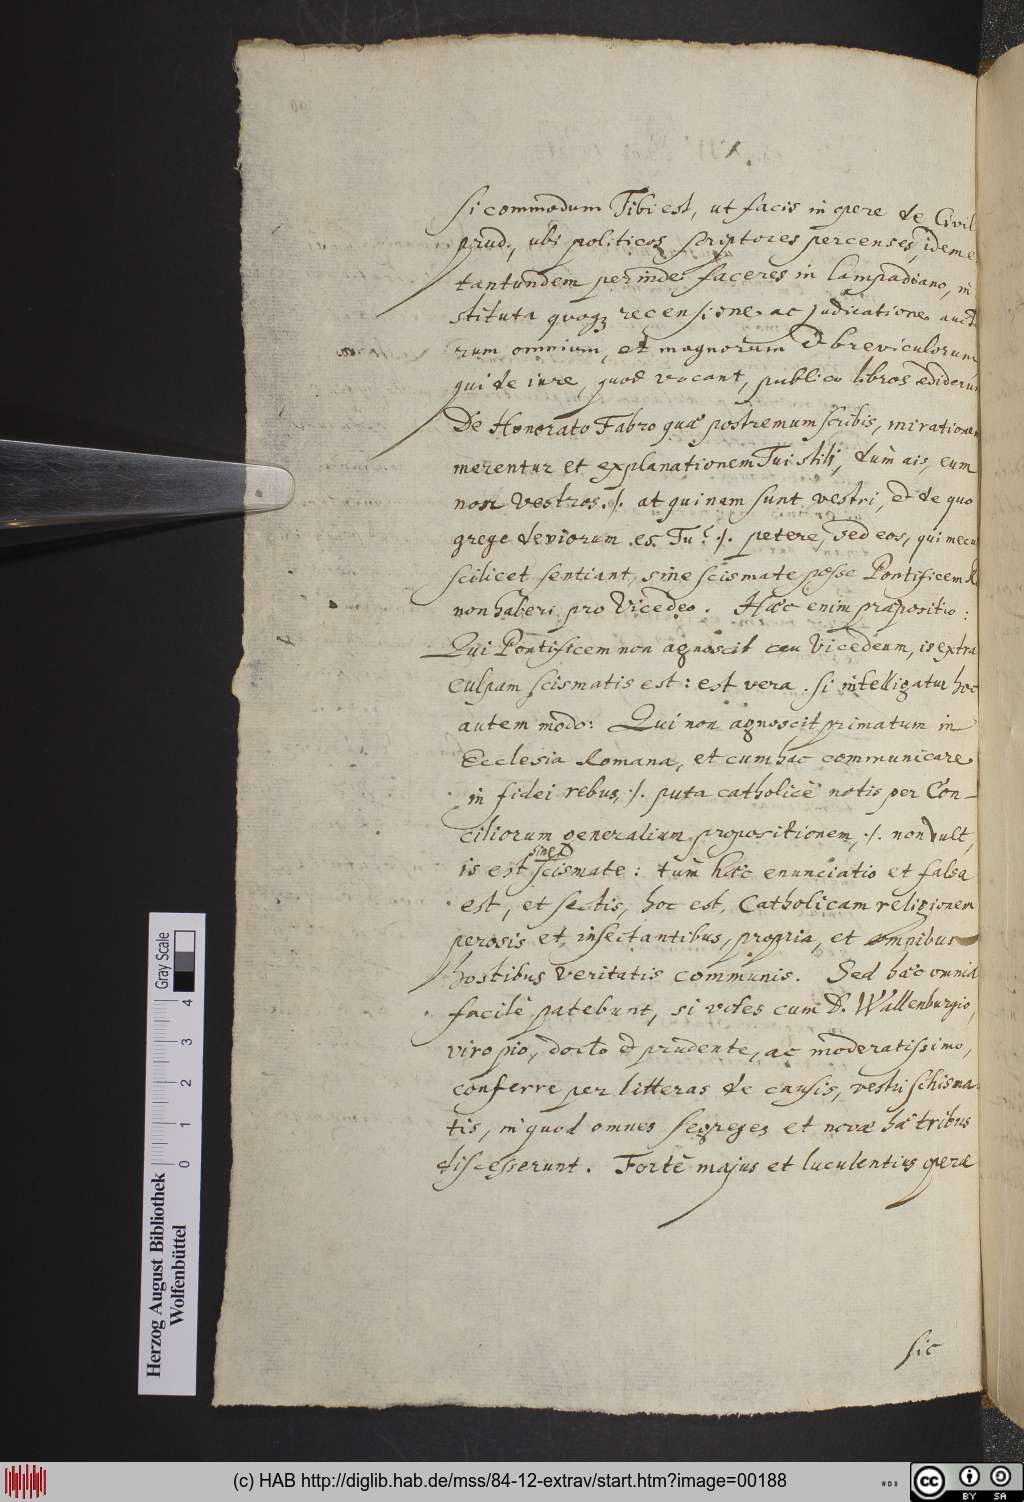 si commodum Tibi est, ut facis in opere de Civil
prud., ubi politicos scriptores percenses, idem e
tantundem perinde faceres in Lampadiano, in
stituta quoq; recensione ac judicatione aucto
rum omnium, et magnorum & breviculorum,
qui de iure, quod vocant, publico libros ediderun
De Honorato Fabro quae postremum scribis, mirationem
merentur et explanationem Tui stili, dum ais, eum
non vestros ./. at quinam sunt vestri, & de quo
grege deviorum es Tu? ./. petere, sed eos, qui mecu
scilicet sentiant, sine scismate posse Pontificem R
non haberi pro Vicedeo. Haec enim praepositio:
Qui Pontificem non agnoscit ceu Vicedeum, is extra
culpam scismatis est: est vera. si intelligatur hoc
autem modo: Qui non agnoscit primatum in
Ecclesia Romana, et cum hac communicare
in fidei rebus, ./. puta catholicè notis per Con-
ciliorum generalium propositionem, ./. non vult,
sine
is est scismate: tum haec enunciatio et falsa
est, et sectis, hoc est, Catholicam religionem
perosis et insectantibus, propria, et omnibus
hostibus veritatis communis. Sed haec omnia
facilè patebunt, si voles cum D. Wallenburgio,
viro pio, docto & prudente, ac moderatissimo,
conferre per litteras de causis, vestri schisma
tis, in quod omnes segreges et novae hae tribus
discesserunt. Fortè majus et luculentius operae
sic
Herzog August Bibliothek
Wolfenbüttel
0 1 2 3 4
Gray Scale
(c) HAB http://diglib.hab.de/mss/84-12-extrav/start.htm?image=00188
cc BY SA